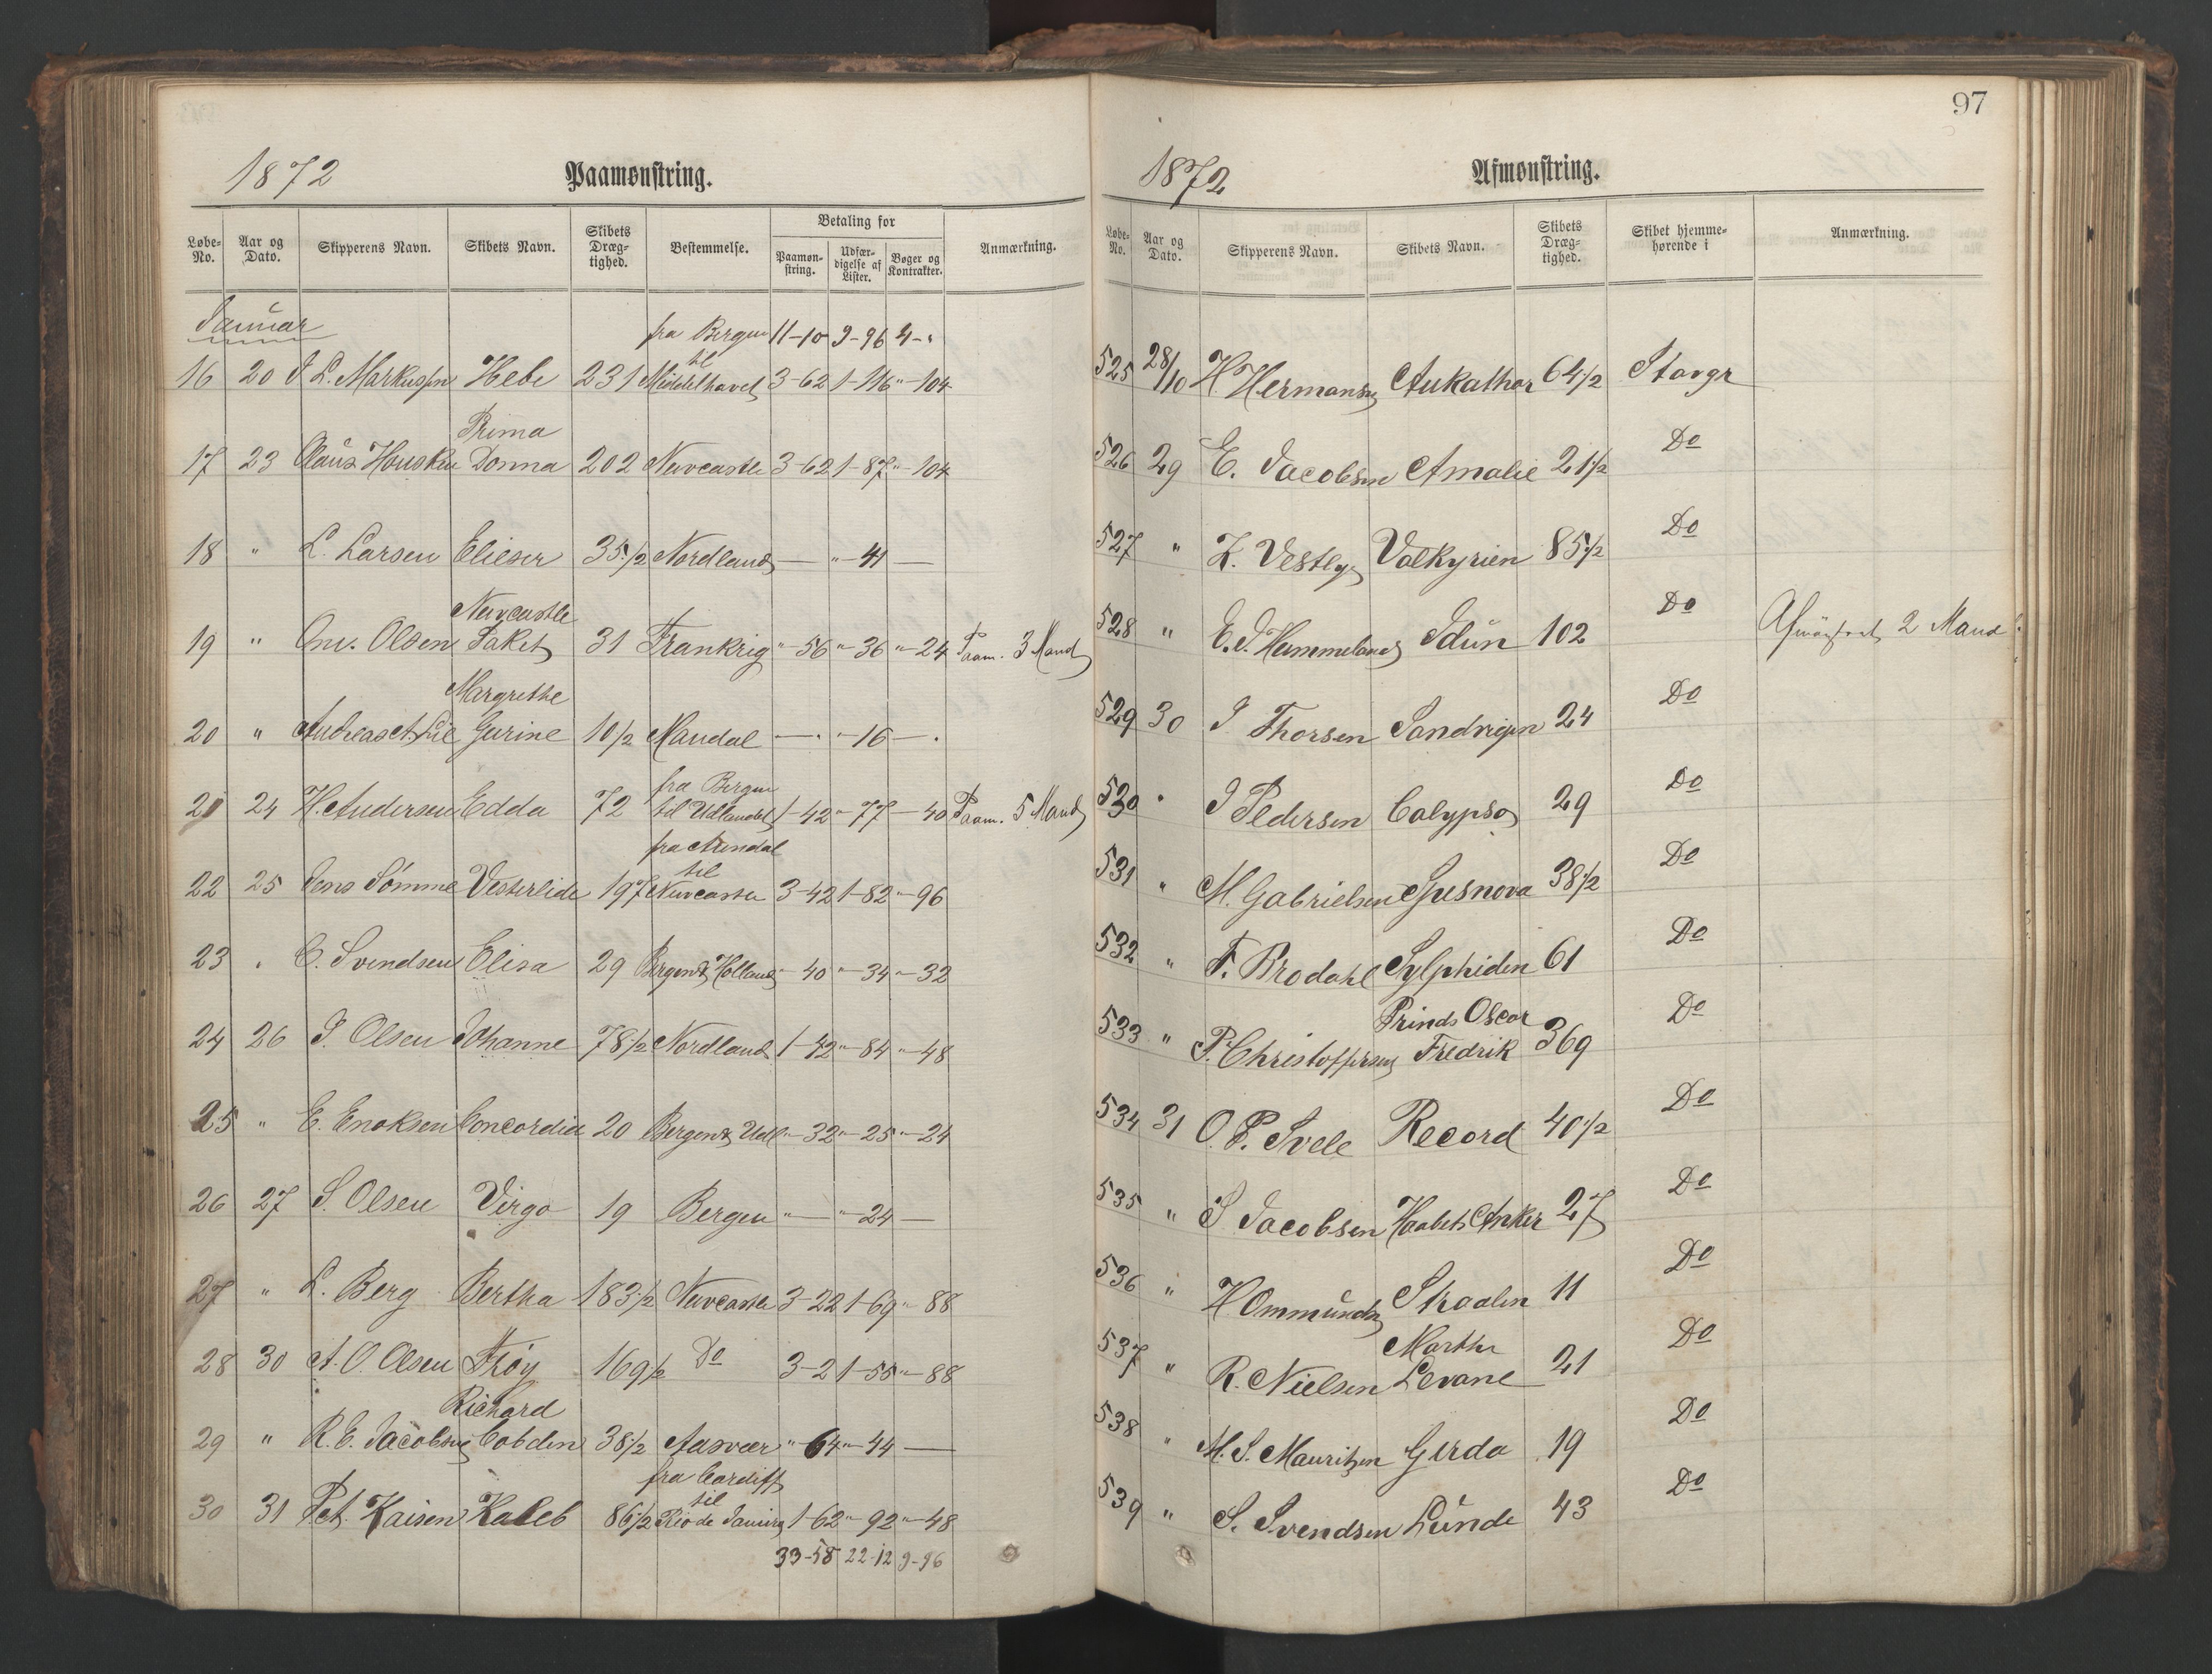 97
1872 Paamønstring.
Løbe-No. Aar og Dato. Skipperens Navn. Skibets Navn. Skibets Dræg-tighed. Bestemmelse. Betaling for Paamøn-string. Udfær-digelse af Lister. Bøger og Kontrakter. Anmærkning.
Januar
fra Bergen 11-10 9-96 4-"
til
16 20 J L. Markussen Hebe 231 Middelhavet 3-62 1-116 "-104
Prima
17 23 Claus Housken Donna 202 Newcastle 3-62 1-87 "-104
18 " L. Larsen Elieser 35 1/2 Nordland — "-41 —
Newcastle
19 " Olsen Paket 31 Frankrig "-56 "-36 "-24 Paam. 3 Mand
Margrethe
20 " Andreas A. Lie Gurine 10 1/2 Mandal — "-16 —
fra Bergen
21 24 H. Andersen Edda 72 til Udlandet 1-42 "-77 "-40 Paam. 5 Mand
fra Arendal
til
22 25 Jens Sømme Vesterlide 197 Newcastle 3-42 1-82 "-96
23 " C. Svendsen Elisa 29 Bergen & Holland "-40 "-34 "-32
24 26 J. Olsen Johanne 78 1/2 Nordland 1-42 "-84 "-48
25 " E. Enoksen Concordia 20 Bergen & Udl "-32 "-25 "-24
26 27 S. Olsen Virgo 19 Bergen "— "-24 —
27 " L. Berg Bertha 183 1/2 Newcastle 3-22 1-69 "-88
28 30 A. O. Olsen Frøy 169 1/2 Do 3-2 1-55 "-88
Richard
29 " R. E. Jacobsen Cobden 38 1/2 Aasvær "-64 "-44 —
fra Cardiff
til
30 31 Pet. Kaisen Kaleb 86 1/2 Rio de Janeiro 1-62 "-92 "-48
33-58 22-12 9-96
1872 Afmønstring.
Løbe-No. Aar og Dato. Skipperens Navn. Skibets Navn. Skibets Dræg-tighed. Skibet hjemme-hørende i Anmærkning.
525 28/10 H Hermansen Aukathor 64 1/2 Stavgr
526 29 E. Jacobsen Amalie 21 1/2 Do
527 " Z. Vestly Valkyrien 85 1/2 Do
528 " E. J. Hammeland Idun 102 Do Afmønstret 2 Mand
529 30 J Thorsen Sandvigen 24 Do
530 " J Pedersen Calypso 29 Do
531 " M. Gabrielsen Gusnova 38 1/2 Do
532 " F. Brodahl Sylphiden 61 Do
Prinds Oscar
533 " P. Christoffersen Fredrik 369 Do
534 31 O. P. Svele Record 40 1/2 Do
535 " S Jacobsen Haabets Anker 27 Do
536 " H Ommundsen Straalen 11 Do
Martha
537 " R. Nielsen Levane 21 Do
538 " M. S. Mauritzen Gerda 19 Do
539 " S. Svendsen Lunde 43 Do